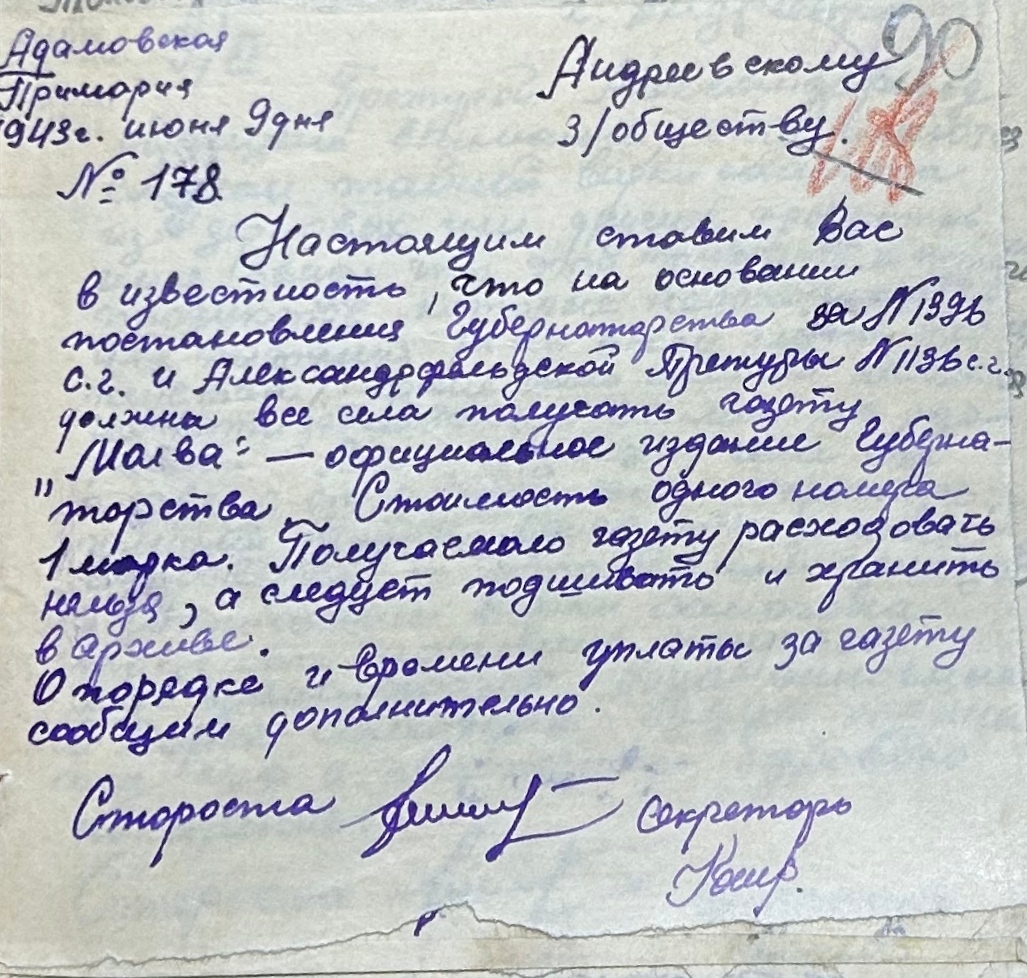 Адамовская
Примария
1943г. июня 9 дня
№ 178
Андреевскому
з/обществу.
90
118
Настоящим ставим Вас
в известность, что на основании
постановления Губернаторства за N 1396
с.г. и Александрфельдской Претуры N 1136 с.г.
должна все села получать газету
„Молва" — официальное издание Губерна-
торства. Стоимость одного номера
1 марка. Получаемою газету расходовать
нельзя, а следует подшивать и хранить
в архиве.
О порядке и времени уплаты за газету
сообщим дополнительно.
Староста
секретарь